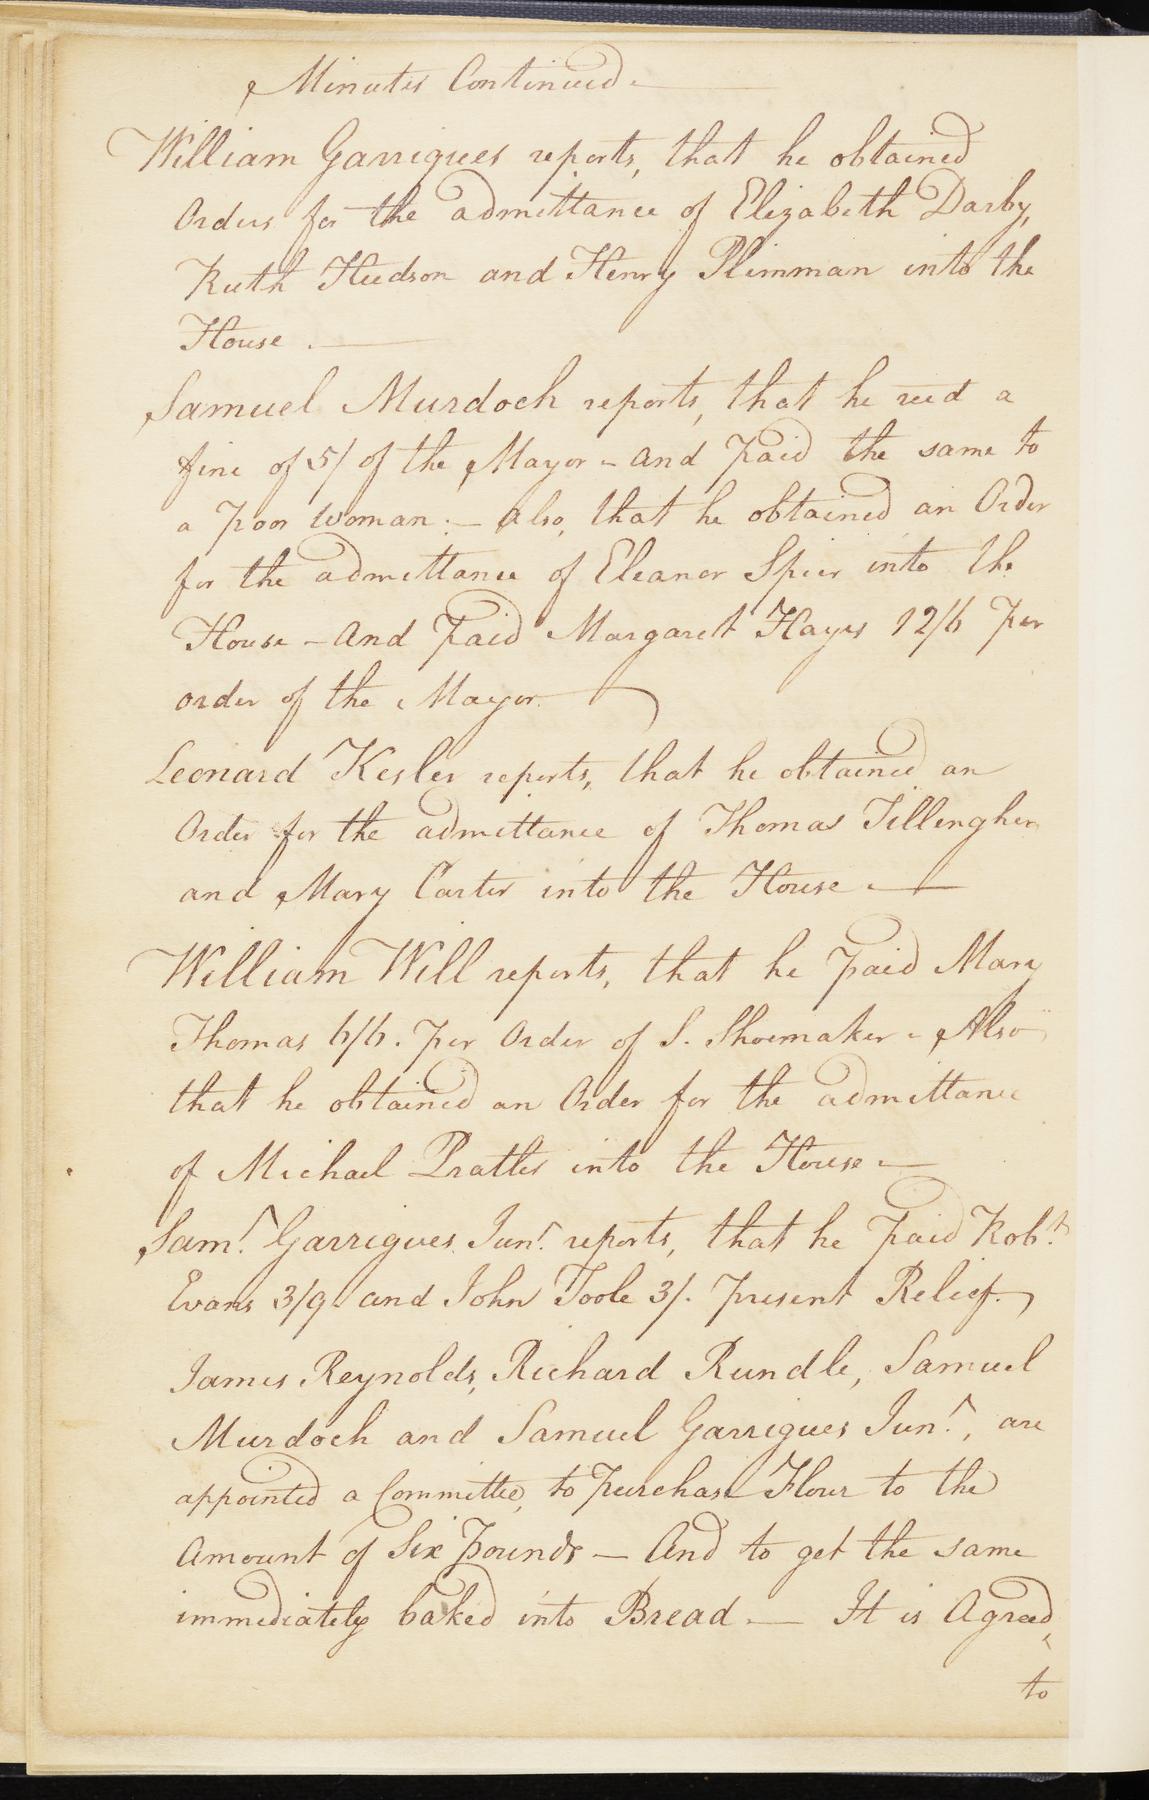 Minutes Continued.
William Garrigues reports, that he obtained
Orders for the admittance of Elizabeth Darby,
Ruth Hudson and Henry Plimman into the
House.
Samuel Murdoch reports, that he recd a
fine of 5/ of the Mayor - and paid the same to
a poor woman. — also, that he obtained an Order
for the admittance of Eleanor Spier into the
House - and Paid Margaret Hayes 12/6 per
order of the Mayor.
Leonard Kesler reports, that he obtained an
Order for the admittance of Thomas Tillingher
and Mary Carter into the House. —
William Will reports, that he paid Mary
Thomas 6/6. per Order of S. Shoemaker - Also
that he obtained an Order for the admittance
of Michael Prattes into the House —
Saml. Garrigues Junr. reports, that he paid Robt.
Evans 3/9. and John Toole 3/. present Relief.
James Reynolds, Richard Rundle, Samuel
Murdoch and Samuel Garrigues Junr., are
appointed a Committee, to purchase Flour to the
Amount of Six Pounds — And to get the same
immediately baked into Bread. — It is Agreed,
to